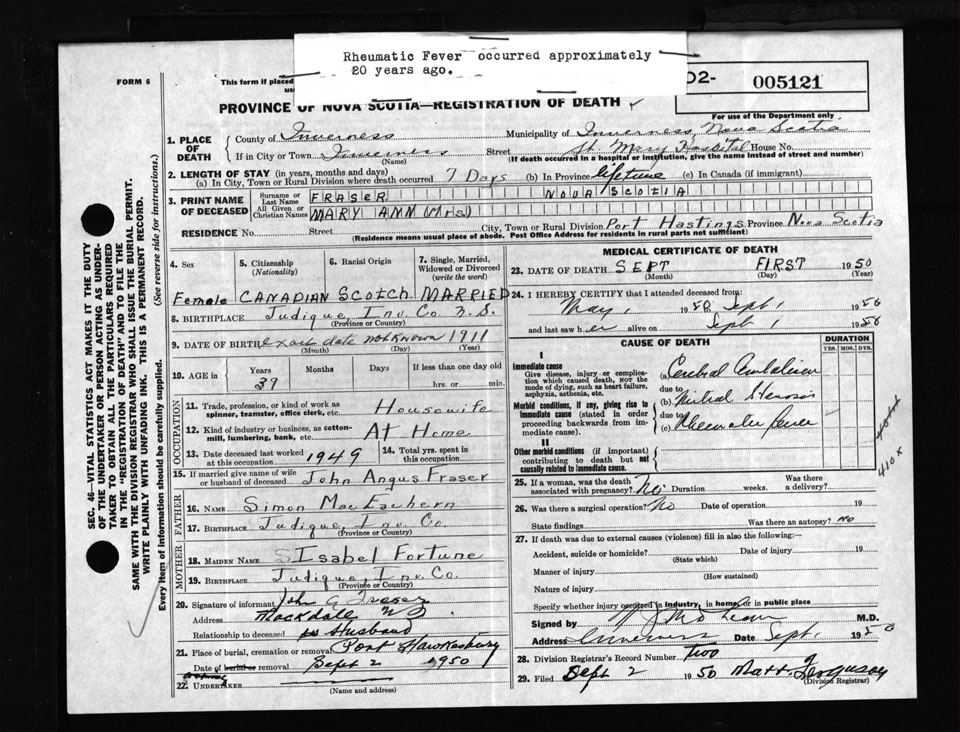 Rheumatic Fever occurred approximately
20 years ago.
FORM 6
This form if placed
D2- 005121
PROVINCE OF NOVA SCOTIA—REGISTRATION OF DEATH
For use of the Department only
1. PLACE OF DEATH
County of Inverness Municipality of Inverness, Nova Scotia
If in City or Town Inverness Street St. Mary Hospital House No.
(Name) (If death occurred in a hospital or institution, give the name instead of street and number)
2. LENGTH OF STAY (in years, months and days)
(a) In City, Town or Rural Division where death occurred 7 Days (b) In Province lifetime (c) In Canada (if immigrant)
3. PRINT NAME OF DECEASED
Surname or Last Name FRASER NOVA SCOTIA
All Given or Christian Names MARY ANN (Mrs)
RESIDENCE No. Street City, Town or Rural Division Port Hastings Province Nova Scotia
(Residence means usual place of abode. Post Office Address for residents in rural parts not sufficient)
4. Sex 5. Citizenship (Nationality) 6. Racial Origin 7. Single, Married, Widowed or Divorced (write the word)
Female CANADIAN Scotch MARRIED
8. BIRTHPLACE Judique, Inv. Co N.S.
(Province or Country)
9. DATE OF BIRTH exact date not known 1911
(Month) (Day) (Year)
10. AGE in Years 39 Months Days If less than one day old hrs. or min.
OCCUPATION
11. Trade, profession, or kind of work as spinner, teamster, office clerk, etc. Housewife
12. Kind of industry or business, as cotton-mill, lumbering, bank, etc. At Home
13. Date deceased last worked at this occupation 1949 14. Total yrs. spent in this occupation
15. If married give name of wife or husband of deceased John Angus Fraser
FATHER
16. NAME Simon MacEachern
17. BIRTHPLACE Judique, Inv. Co.
(Province or Country)
MOTHER
18. MAIDEN NAME Isabel Fortune
19. BIRTHPLACE Judique, Inv. Co.
(Province or Country)
20. Signature of informant John A Fraser
Address Mackdale N S
Relationship to deceased Husband
21. Place of burial, cremation or removal Port Hawkesbury
Date of burial or removal Sept 2 1950
22. UNDERTAKER
(Name and address)
MEDICAL CERTIFICATE OF DEATH
23. DATE OF DEATH SEPT FIRST 1950
(Month) (Day) (Year)
24. I HEREBY CERTIFY that I attended deceased from:
May, 1 1950 Sept, 1 1950
and last saw her alive on Sept 1 1950
CAUSE OF DEATH DURATION
YRS. MOS. DYS.
I
Immediate cause
Give disease, injury or complication which caused death, NOT the mode of dying, such as heart failure, asphyxia, asthenia, etc.
(a) Cerebral Embolism
due to
(b) Mitral Stenosis
Morbid conditions, if any, giving rise to immediate cause (stated in order proceeding backwards from immediate cause).
due to
(c) Rheumatic fever
II
Other morbid conditions (if important) contributing to death but not causally related to immediate cause.
410 x
25. If a woman, was the death associated with pregnancy? No Duration weeks. Was there a delivery?
26. Was there a surgical operation? No Date of operation 19
State findings Was there an autopsy? No
27. If death was due to external causes (violence) fill in also the following:—
Accident, suicide or homicide? Date of injury 19
(State which)
Manner of injury
(How sustained)
Nature of injury
Specify whether injury occurred in industry, in home or in public place
Signed by M.D.
Address Inverness Date Sept 1 1950
28. Division Registrar's Record Number two
29. Filed Sept 2 1950 Matt. Ferguson
(Division Registrar)
SEC. 46—VITAL STATISTICS ACT MAKES IT THE DUTY
OF THE UNDERTAKER OR PERSON ACTING AS UNDER-
TAKER TO OBTAIN ALL THE PARTICULARS REQUIRED
IN THE "REGISTRATION OF DEATH" AND TO FILE THE
SAME WITH THE DIVISION REGISTRAR WHO SHALL ISSUE THE BURIAL PERMIT.
WRITE PLAINLY WITH UNFADING INK. THIS IS A PERMANENT RECORD.
Every item of information should be carefully supplied. (See reverse side for instructions.)